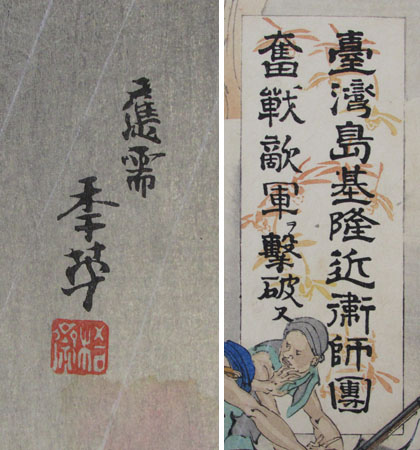 應需
年英
臺灣島基隆近衛師團
奮戦敵軍ヲ撃破ス